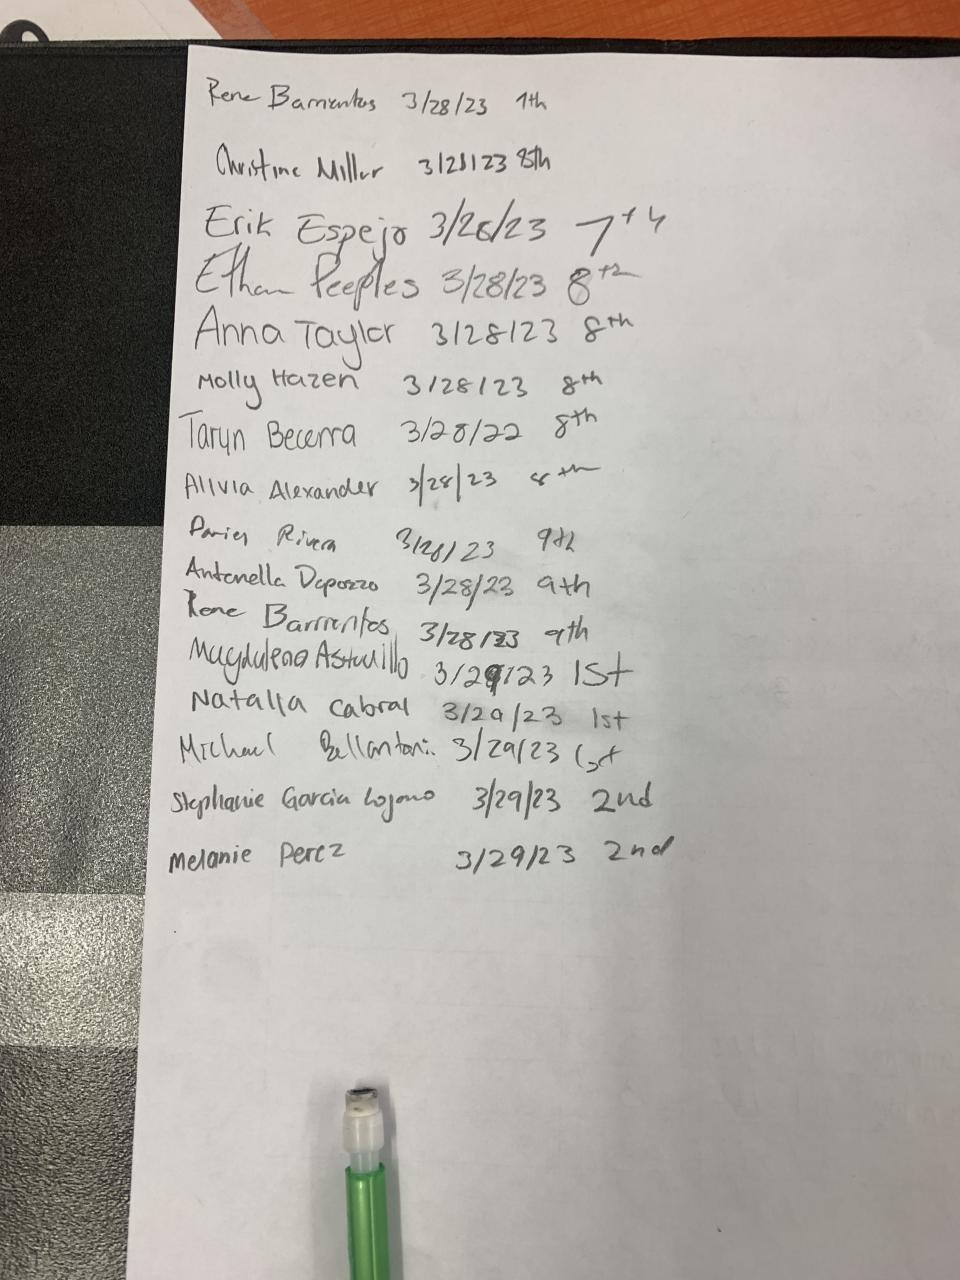 Rene Barrientos 3/28/23 7th
Christine Miller 3/28/23 8th
Erik Espejo 3/26/23 7th
Ethan Peeples 3/28/23 8th
Anna Taylor 3/28/23 8th
Molly Hazen 3/28/23 8th
Taryn Becerra 3/28/22 8th
Alivia Alexander 3/28/23 8th
Rivera 3/28/23 9th
Antonella Depozzo 3/28/23 9th
Rene Barrientos 3/28/23 9th
Magdalena Astudillo 3/29/23 1st
Natalia Cabral 3/29/23 1st
Michael Bellantoni 3/29/23 1st
Stephanie Garcia Lozano 3/29/23 2nd
Melanie Perez 3/29/23 2nd